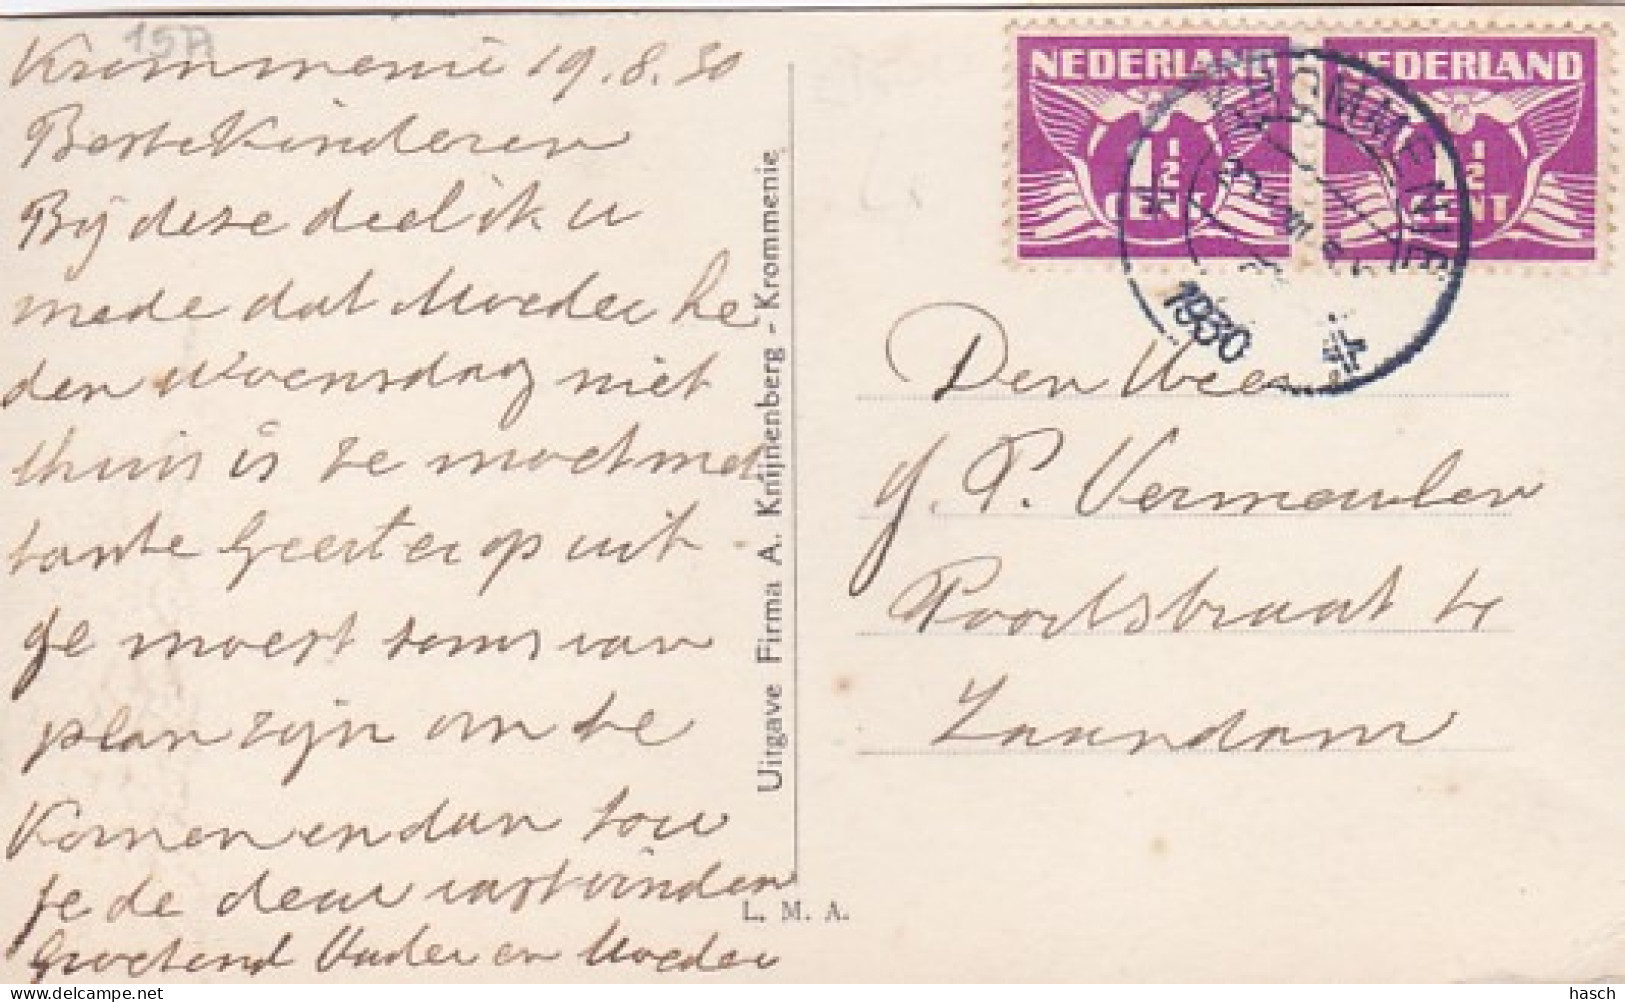 157A
Krommenie 19.8.30
Beste Kinderen
Bij deze deel ik u
mede dat Moeder he
den Woensdag niet
thuis is ze moet met
tante Geertie op uit
ge moest soms van
plan zijn om te
Komen en dan sou
je de deur vast vinden
Groetend Vader en Moeder
Uitgave Firma A. Knijnenberg - Krommenie
L. M. A.
NEDERLAND
1/2
CENT
NEDERLAND
1/2
CENT
KROMMENIE
1930
Den Heer
J. P. Vermeulen
Zaandam
hasch